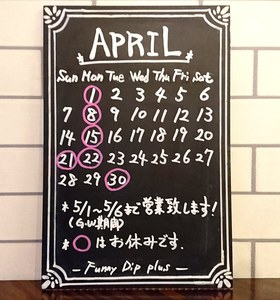 APRIL
Sun Mon Tue Wed Thu Fri Sat
1 2 3 4 5 6
7 8 9 10 11 12 13
14 15 16 17 18 19 20
21 22 23 24 25 26 27
28 29 30
*5/1~5/6まで営業致します!
(G.W期間)
*○はお休みです.
- Funny Dip plus -